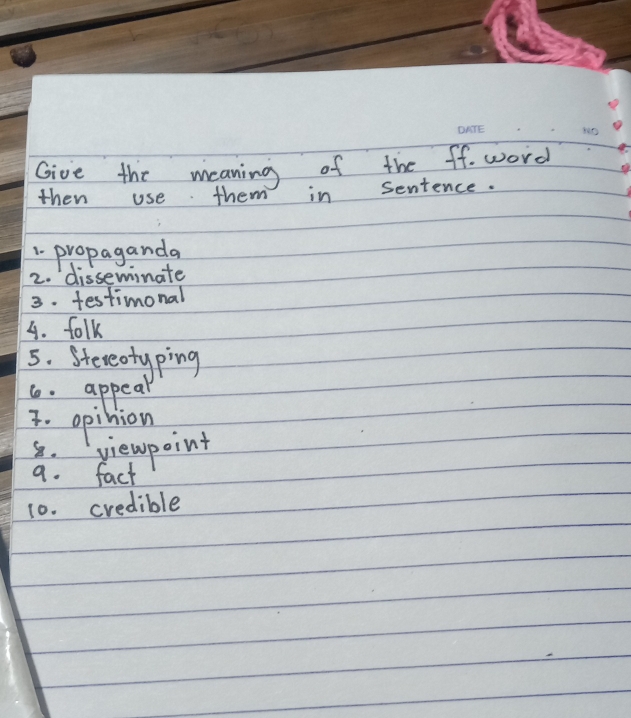 DATE NO
Give the meaning of the ff. word
then use them in sentence.
1. propaganda
2. disseminate
3. testimonal
4. folk
5. Stereotyping
6. appeal
7. opinion
8. viewpoint
9. fact
10. credible